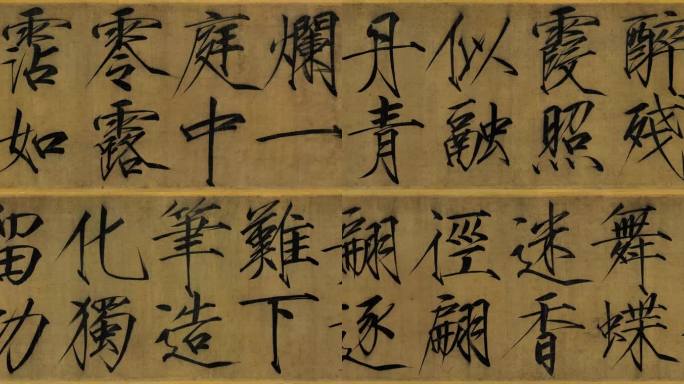 爛一
庭中
零露
霑如
醉殘
霞照
似融
丹青
難下
筆造
化獨
留功
舞蝶
迷香
徑翩
翩逐